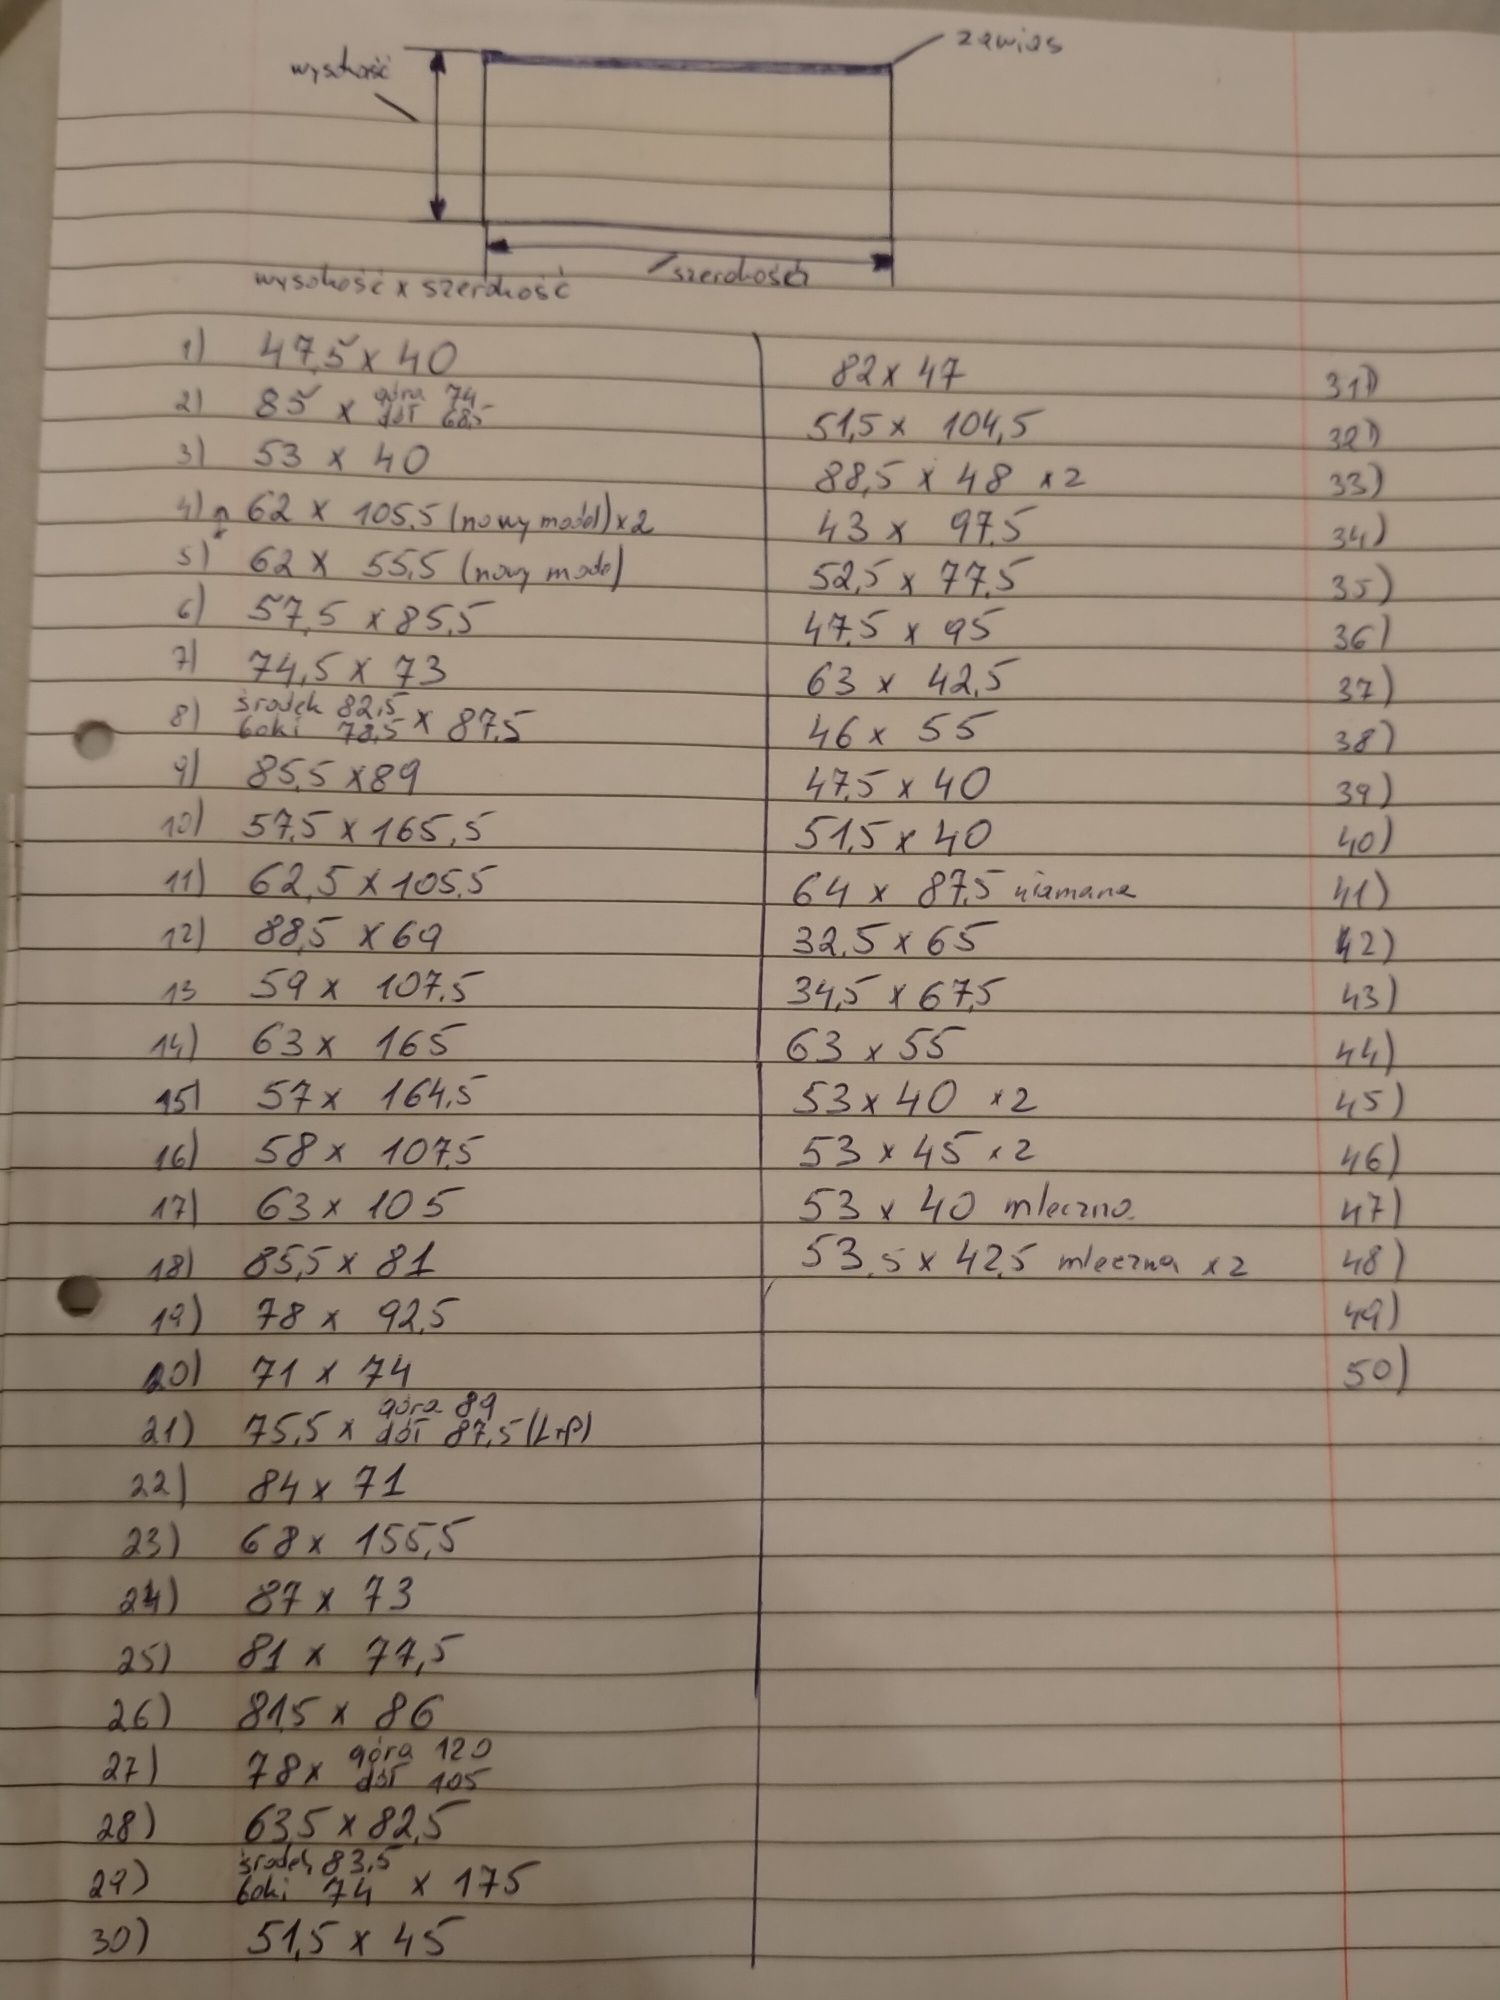 wysokość
zawias
szerokość
wysokość x szerokość
1) 47,5 x 40
2) 85 x góra 74
dół 68,5
3) 53 x 40
4) 62 x 105,5 (nowy model) x2
5) 62 x 55,5 (nowy model)
6) 57,5 x 85,5
7) 74,5 x 73
8) środek 82,5
boki 78,5 x 87,5
9) 85,5 x 89
10) 57,5 x 165,5
11) 62,5 x 105,5
12) 88,5 x 69
13 59 x 107,5
14) 63 x 165
15) 57 x 164,5
16) 58 x 107,5
17) 63 x 105
18) 85,5 x 81
19) 78 x 92,5
20) 71 x 74
21) 75,5 x góra 89
dół 87,5 (L+P)
22) 84 x 71
23) 68 x 155,5
24) 87 x 73
25) 81 x 77,5
26) 81,5 x 86
27) 78 x góra 120
dół 105
28) 63,5 x 82,5
29) środek 83,5
boki 74 x 175
30) 51,5 x 45
82 x 47 31)
51,5 x 104,5 32)
88,5 x 48 x2 33)
43 x 97,5 34)
52,5 x 77,5 35)
47,5 x 95 36)
63 x 42,5 37)
46 x 55 38)
47,5 x 40 39)
51,5 x 40 40)
64 x 87,5 41)
32,5 x 65 42)
34,5 x 67,5 43)
63 x 55 44)
53 x 40 x2 45)
53 x 45 x2 46)
53 x 40 mleczna 47)
53,5 x 42,5 mleczna x2 48)
49)
50)